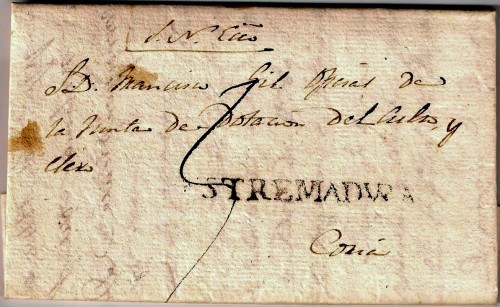 S. N. Ecco
S.D. Francisco Gil Oficial de
la Junta de Dotacion del Culto, y
Clero
STREMADURA
Coria